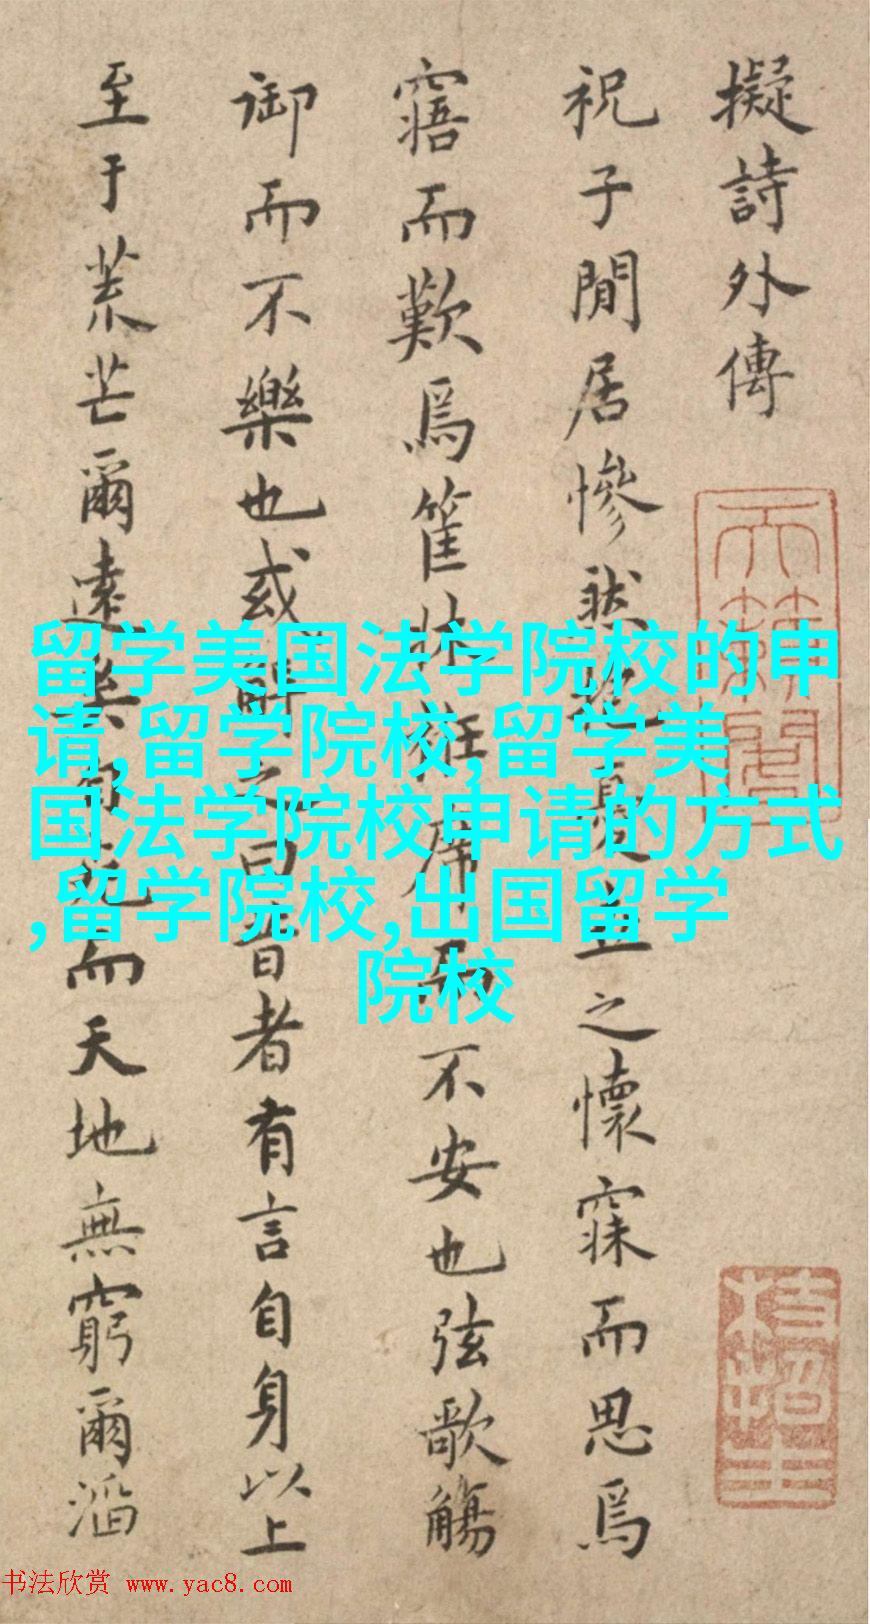 擬詩外傳
祝子閒居慘然
憂世之懷寐而思焉
寤而歎焉筐牀衽席而不安也弦歌觴
御而不樂也或解之曰昔者有言自身以上
至于荒芒爾遠矣
而天地無窮爾滔
留学美国法学院校的申
请,留学院校,留学美
国法学院校申请的方式
,留学院校,出国留学
院校
书法欣赏 www.yac8.com